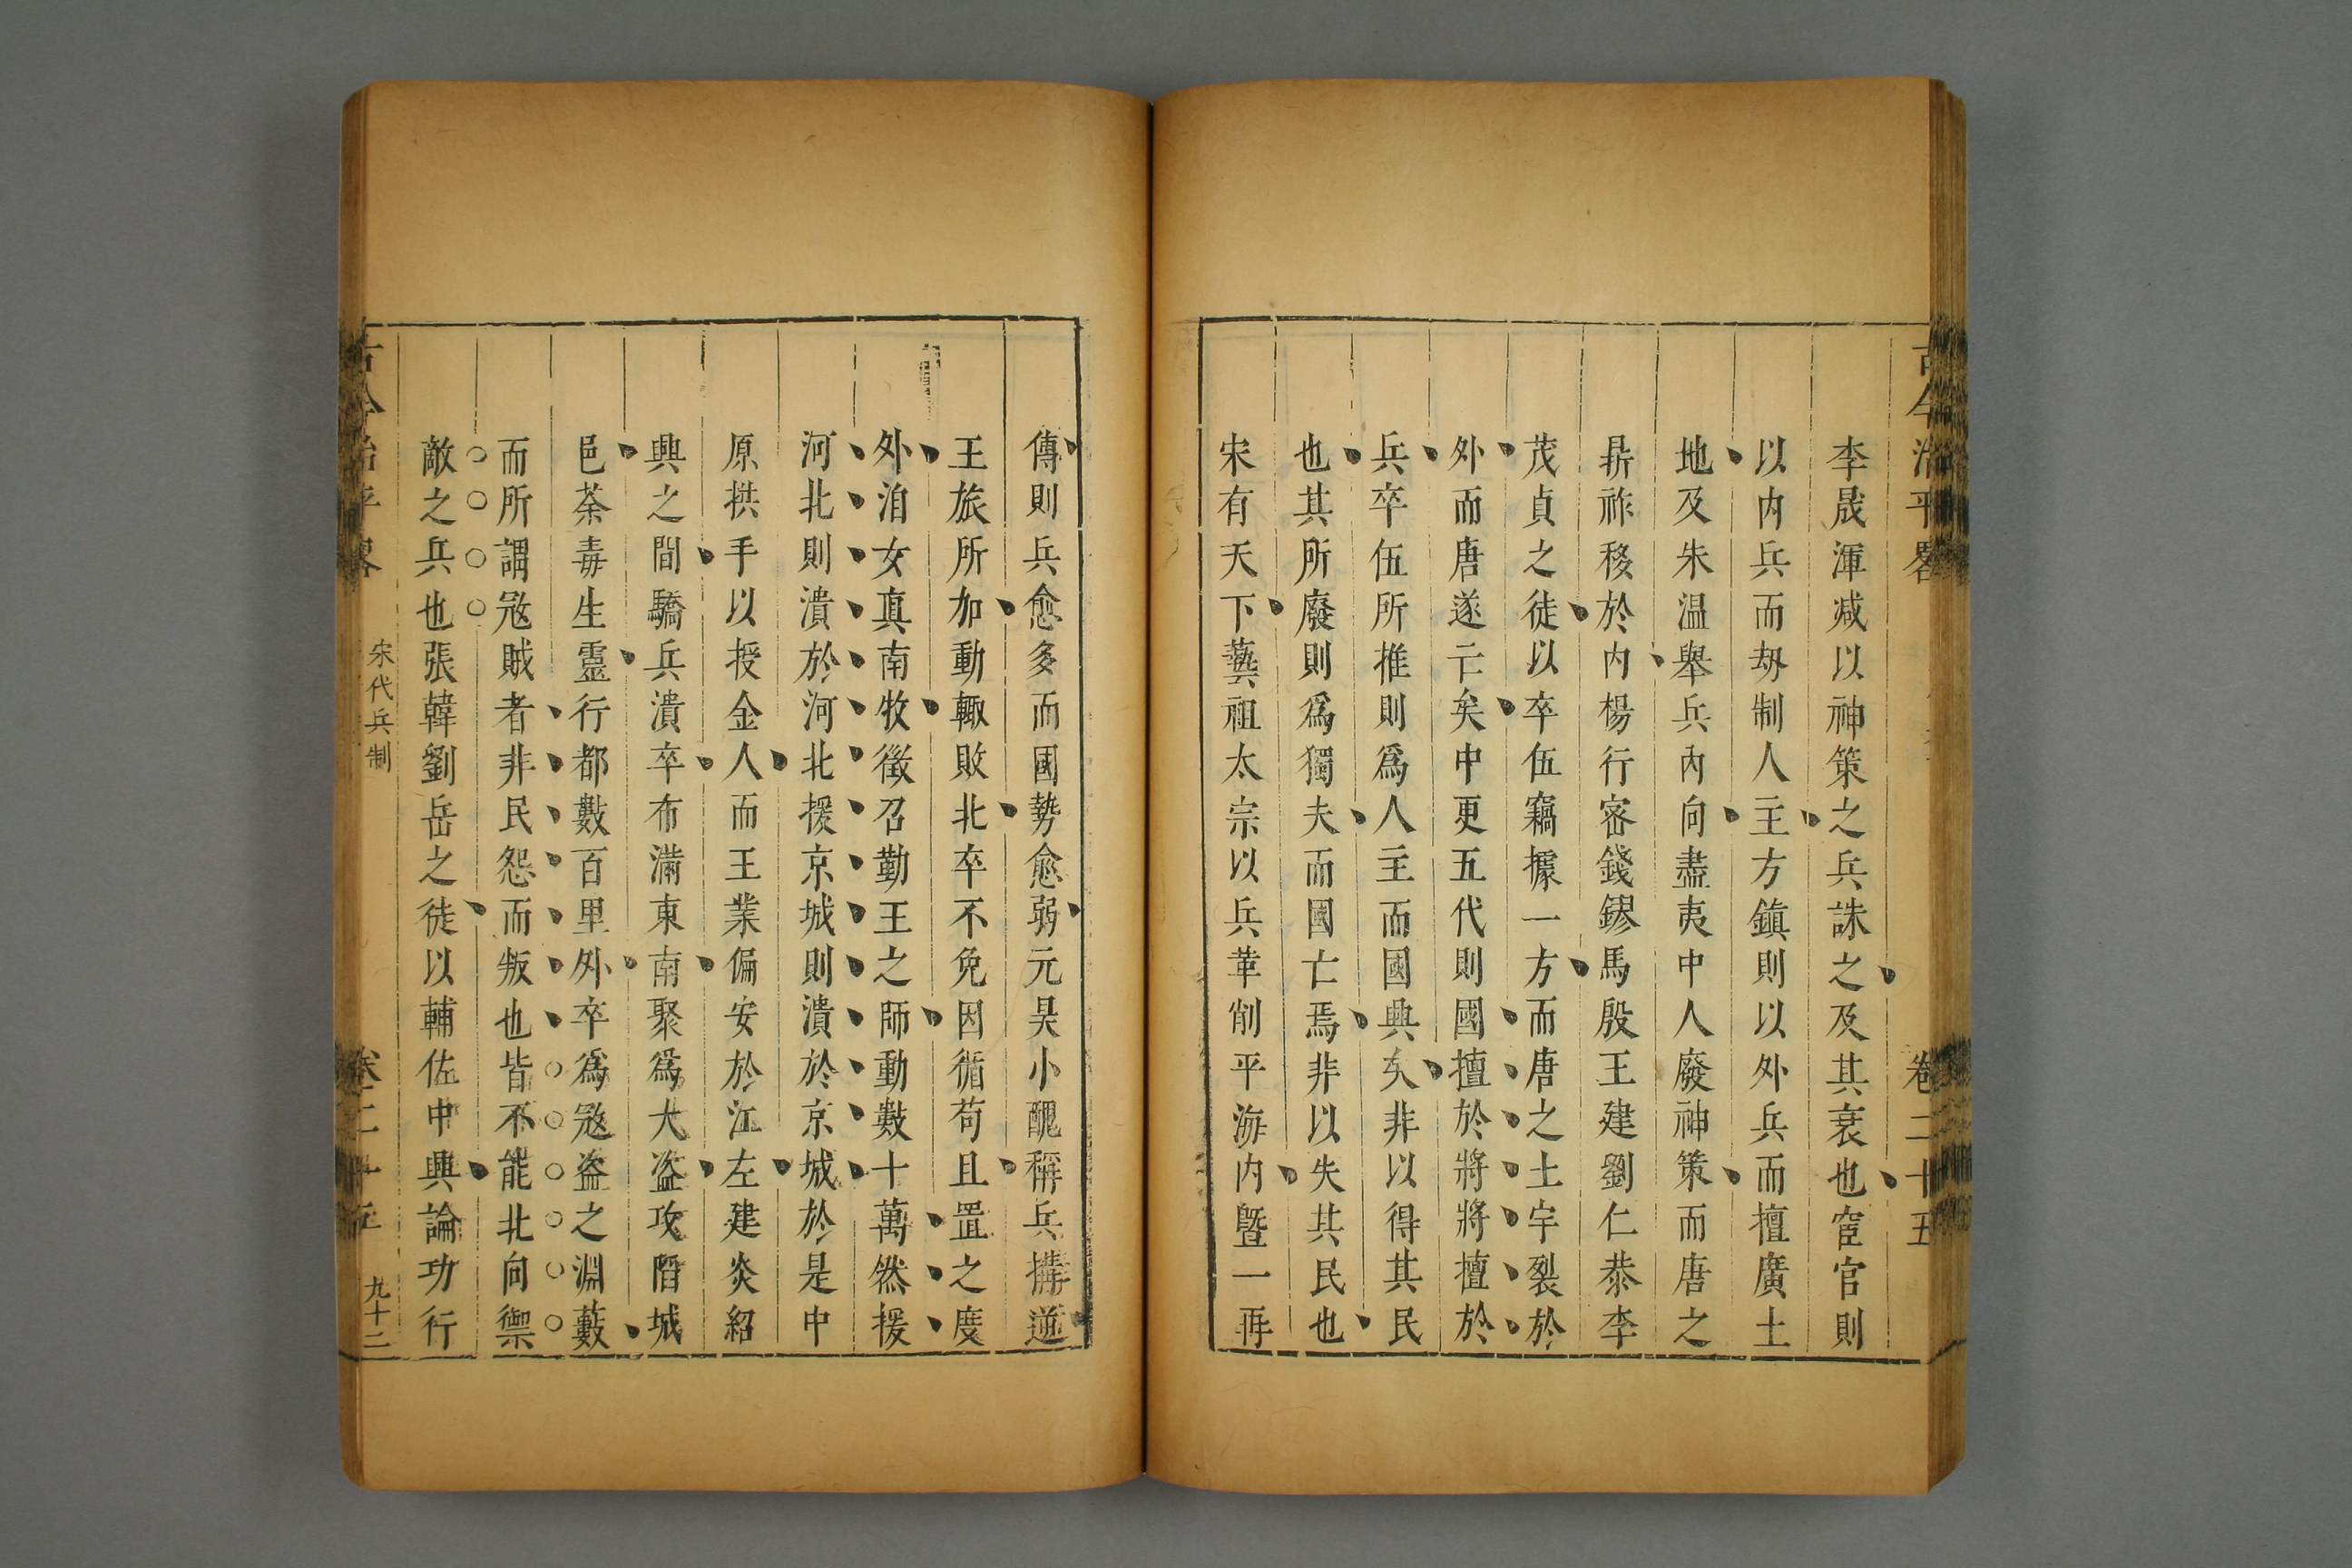 古今治平畧
卷二十五
李晟渾瑊以神策之兵誅之及其衰也宦官則
以內兵而刼制人主方鎮則以外兵而擅廣土
地及朱温舉兵內向盡夷中人廢神策而唐之
鼎祚移於內楊行密錢鏐馬殷王建劉仁恭李
茂貞之徒以卒伍竊據一方而唐之土宇裂於
外而唐遂亡矣中更五代則國擅於將將擅於
兵卒伍所推則爲人主而國興矣非以得其民
也其所廢則爲獨夫而國亡焉非以失其民也
宋有天下藝祖太宗以兵革削平海內曁一再
傳則兵愈多而國勢愈弱元昊小醜稱兵搆逆
王旅所加動輙敗北卒不免因循苟且置之度
外洎女真南牧徵召勤王之師動數十萬然援
河北則潰於河北援京城則潰於京城於是中
原拱手以授金人而王業偏安於江左建炎紹
興之間驕兵潰卒布滿東南聚爲大盗攻陷城
邑荼毒生靈行都數百里外卒爲宼盗之淵藪
而所謂宼賊者非民怨而叛也皆不能北向禦
敵之兵也張韓劉岳之徒以輔佐中興論功行
古今治平畧
宋代兵制
卷二十五
九十二